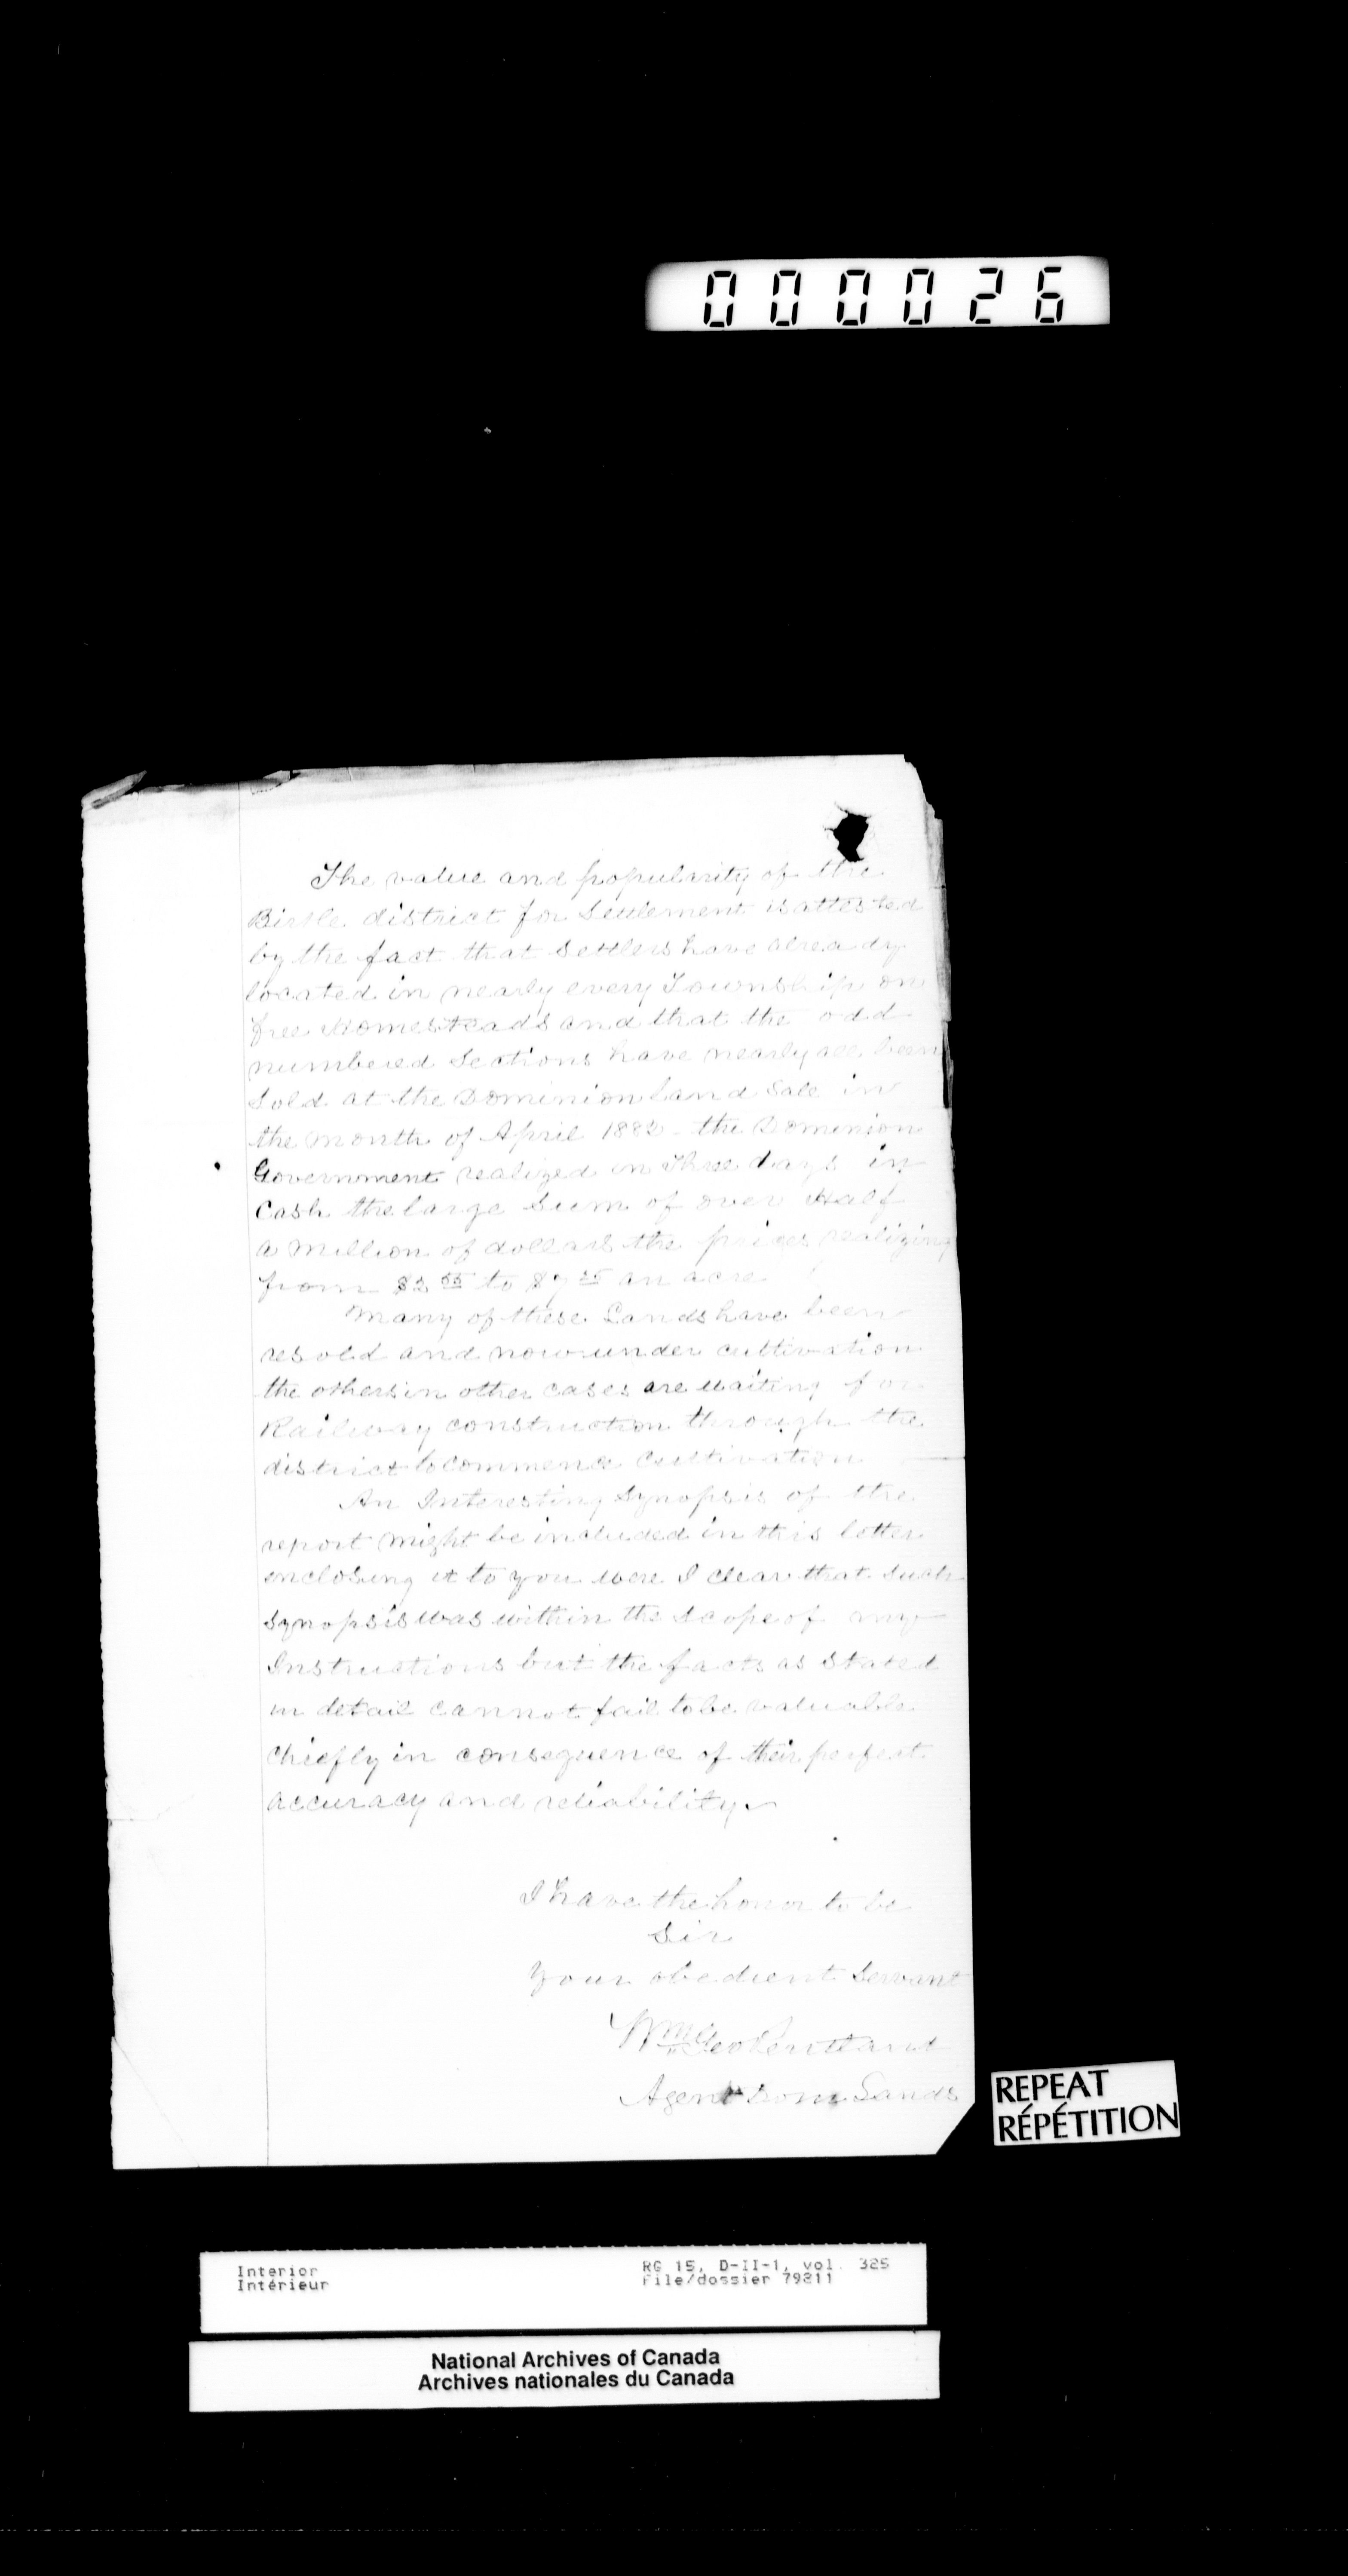 000026
The value and popularity of the
Birtle district for Settlement is attested
by the fact that Settlers have already
located in nearly every Township on
free Homesteads and that the odd
numbered Sections have nearly all been
Sold at the Dominion Land Sale in
the month of April 1882 - the Dominion
Government realized in Three days in
Cash the large Sum of over Half
a Million of dollars the prices realizing
from to an acre
Many of these Lands have been
resold and now under cultivation
the others in other cases are waiting for
Railway construction through the
district to commence Cultivation
An Interesting Synopsis of the
report might be included in this letter
enclosing it to you were I clear that such
Synopsis was within the Scope of my
Instructions but the facts as Stated
in detail cannot fail to be valuable
Chiefly in consequence of their perfect
accuracy and reliability.
I have the honor to be
Sir
Your obedient Servant
Wm Geo Pentland
Agent Dom Lands
REPEAT
RÉPÉTITION
Interior RG 15, D-II-1, vol. 325
Intérieur File/dossier 79211
National Archives of Canada
Archives nationales du Canada